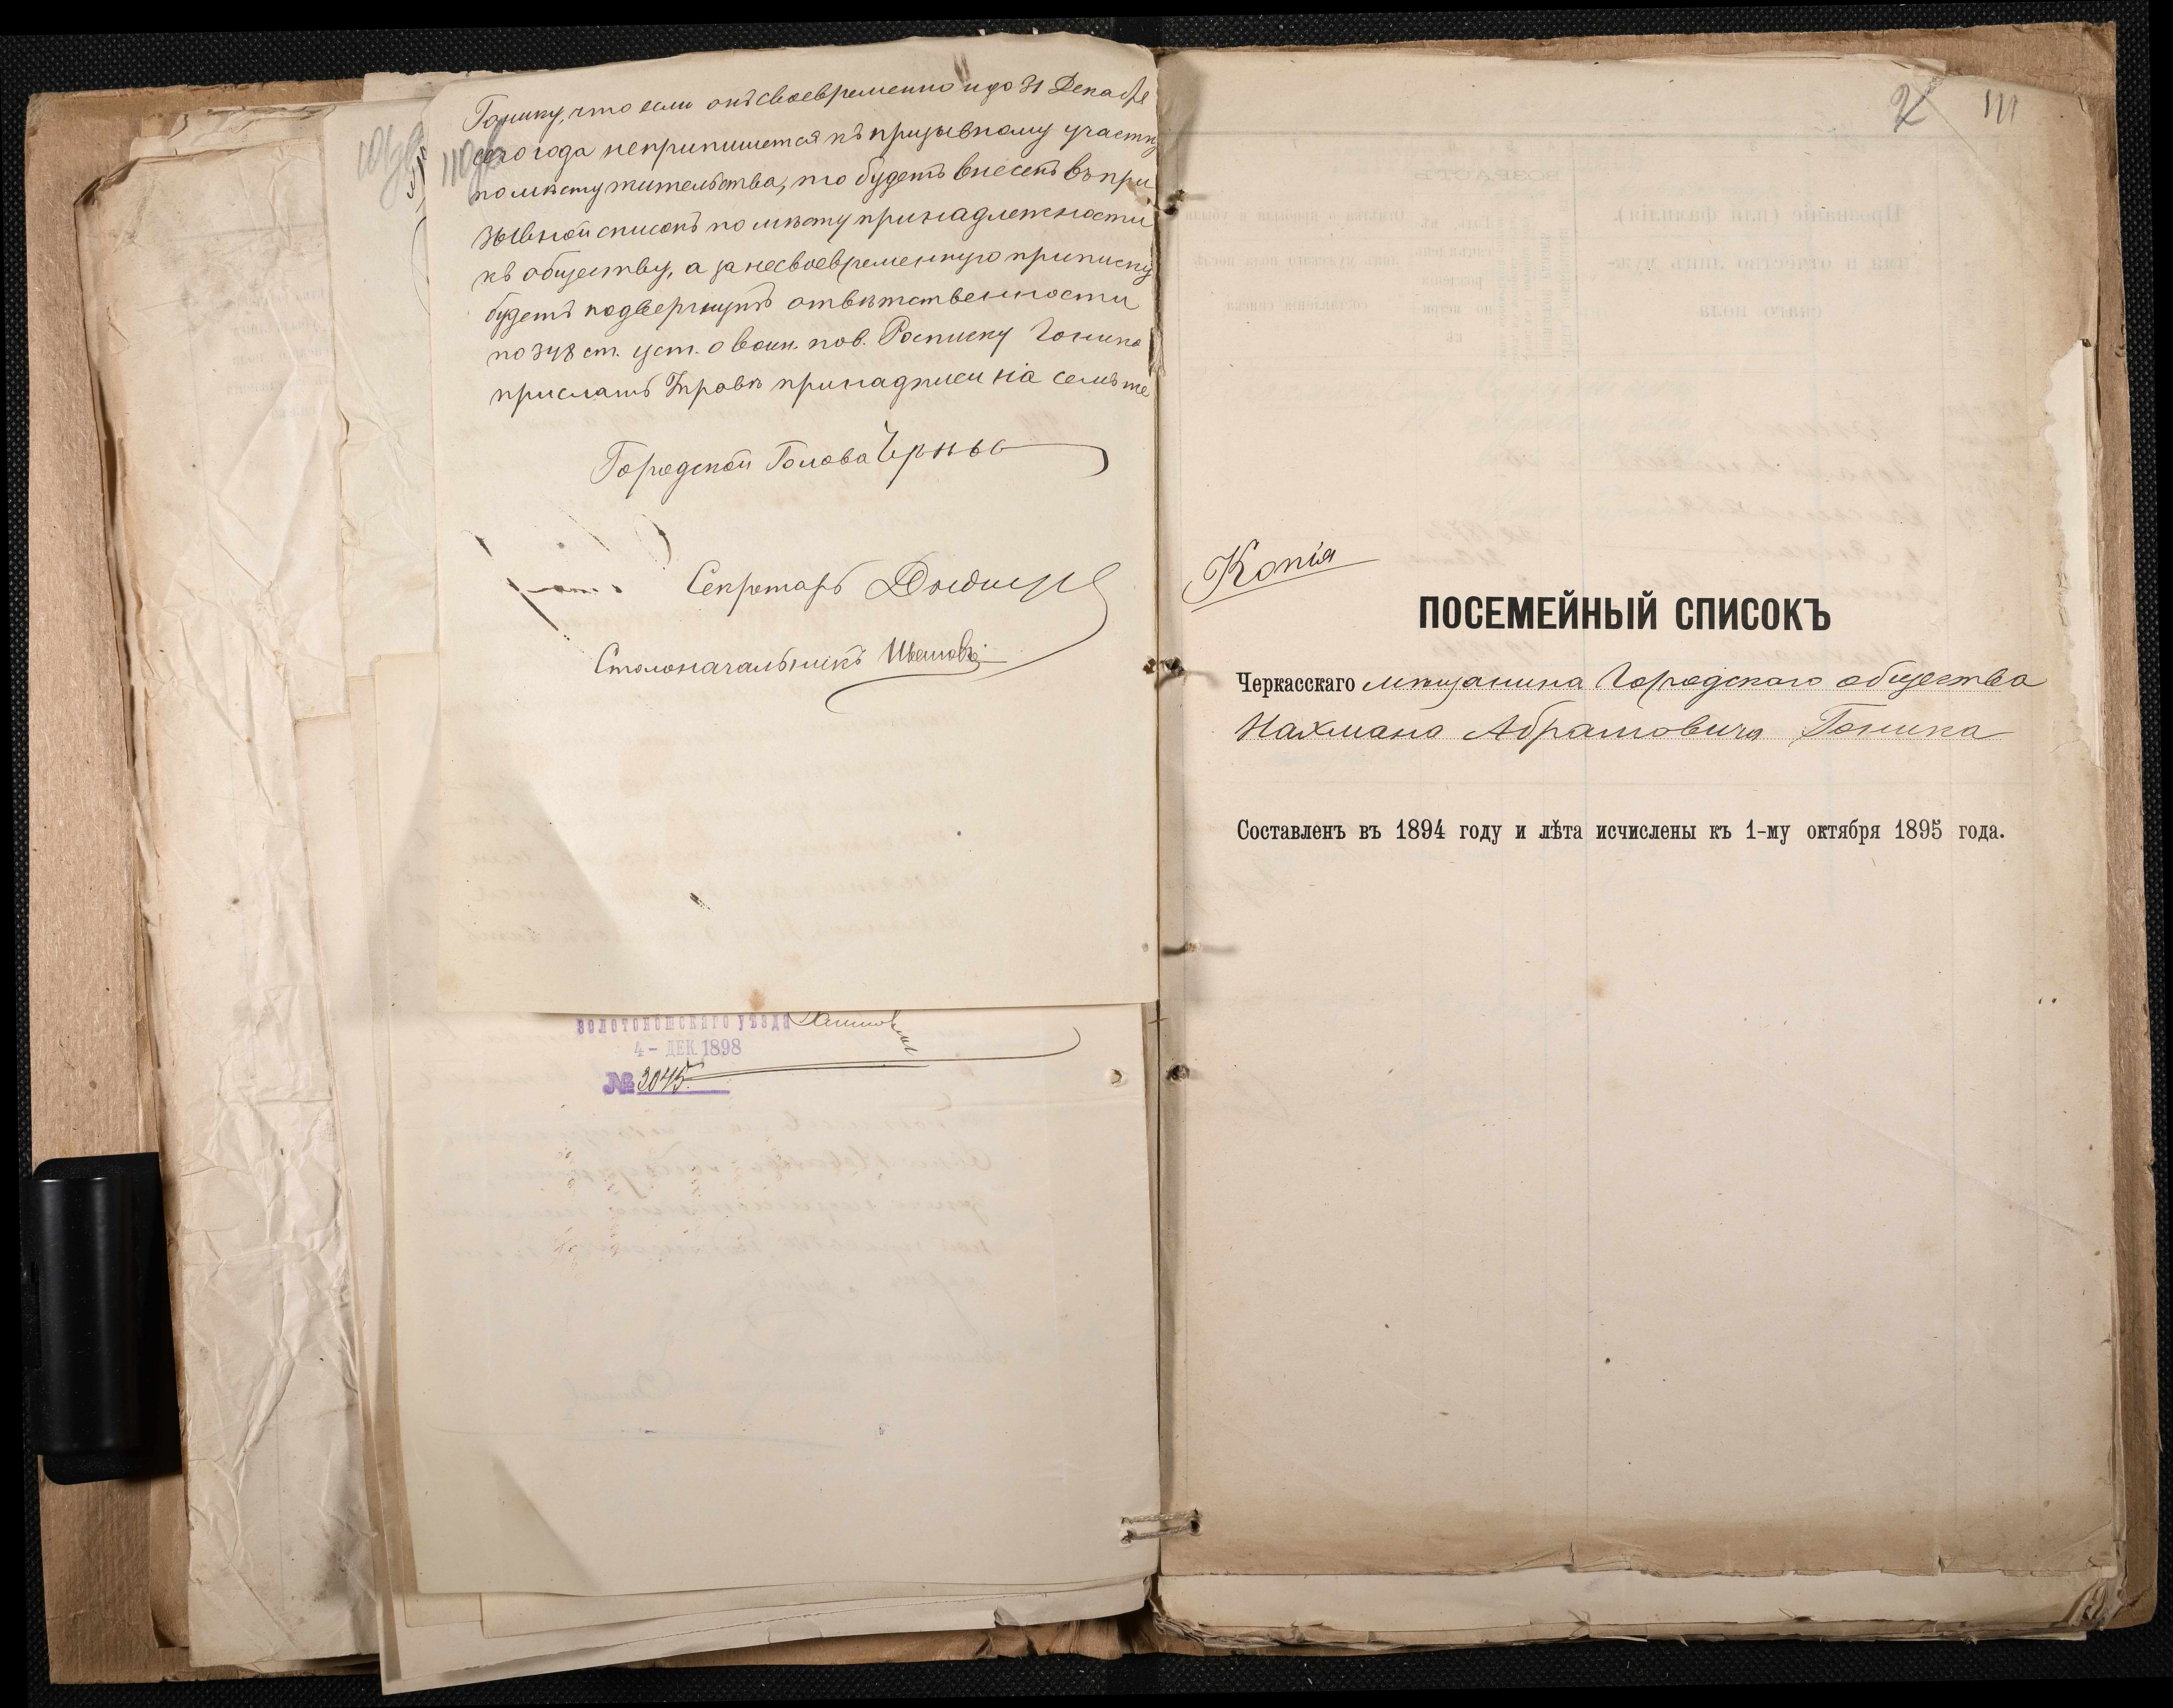 Гонику, что если онъ своевременно и до 31 Декабря
сего года не припишется къ призывному участку
по мѣсту жительства, то будетъ внесенъ въ при
зывной списокъ по мѣсту принадлежности
къ обществу, а за несвоевременную приписку
будетъ подвергнутъ отвѣтственности
по 348 ст. уст. о воин. пов. Росписку Гоника
прислать Управѣ при надписи на семъ же
Городской Голова
Секретарь
Столоначальникъ
Золотоношскаго уѣзда
4 - ДЕК 1898
№ 3045
111
Копія
ПОСЕМЕЙНЫЙ СПИСОКЪ
Черкасскаго мѣщанина Городскаго общества
Нахмана Абрамовича Гоника
Составленъ въ 1894 году и лѣта исчислены къ 1-му октября 1895 года.